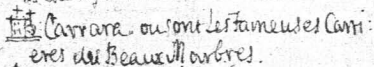 Carrara. ou sont Les fameuses Carri:
eres du Beaux Marbres.